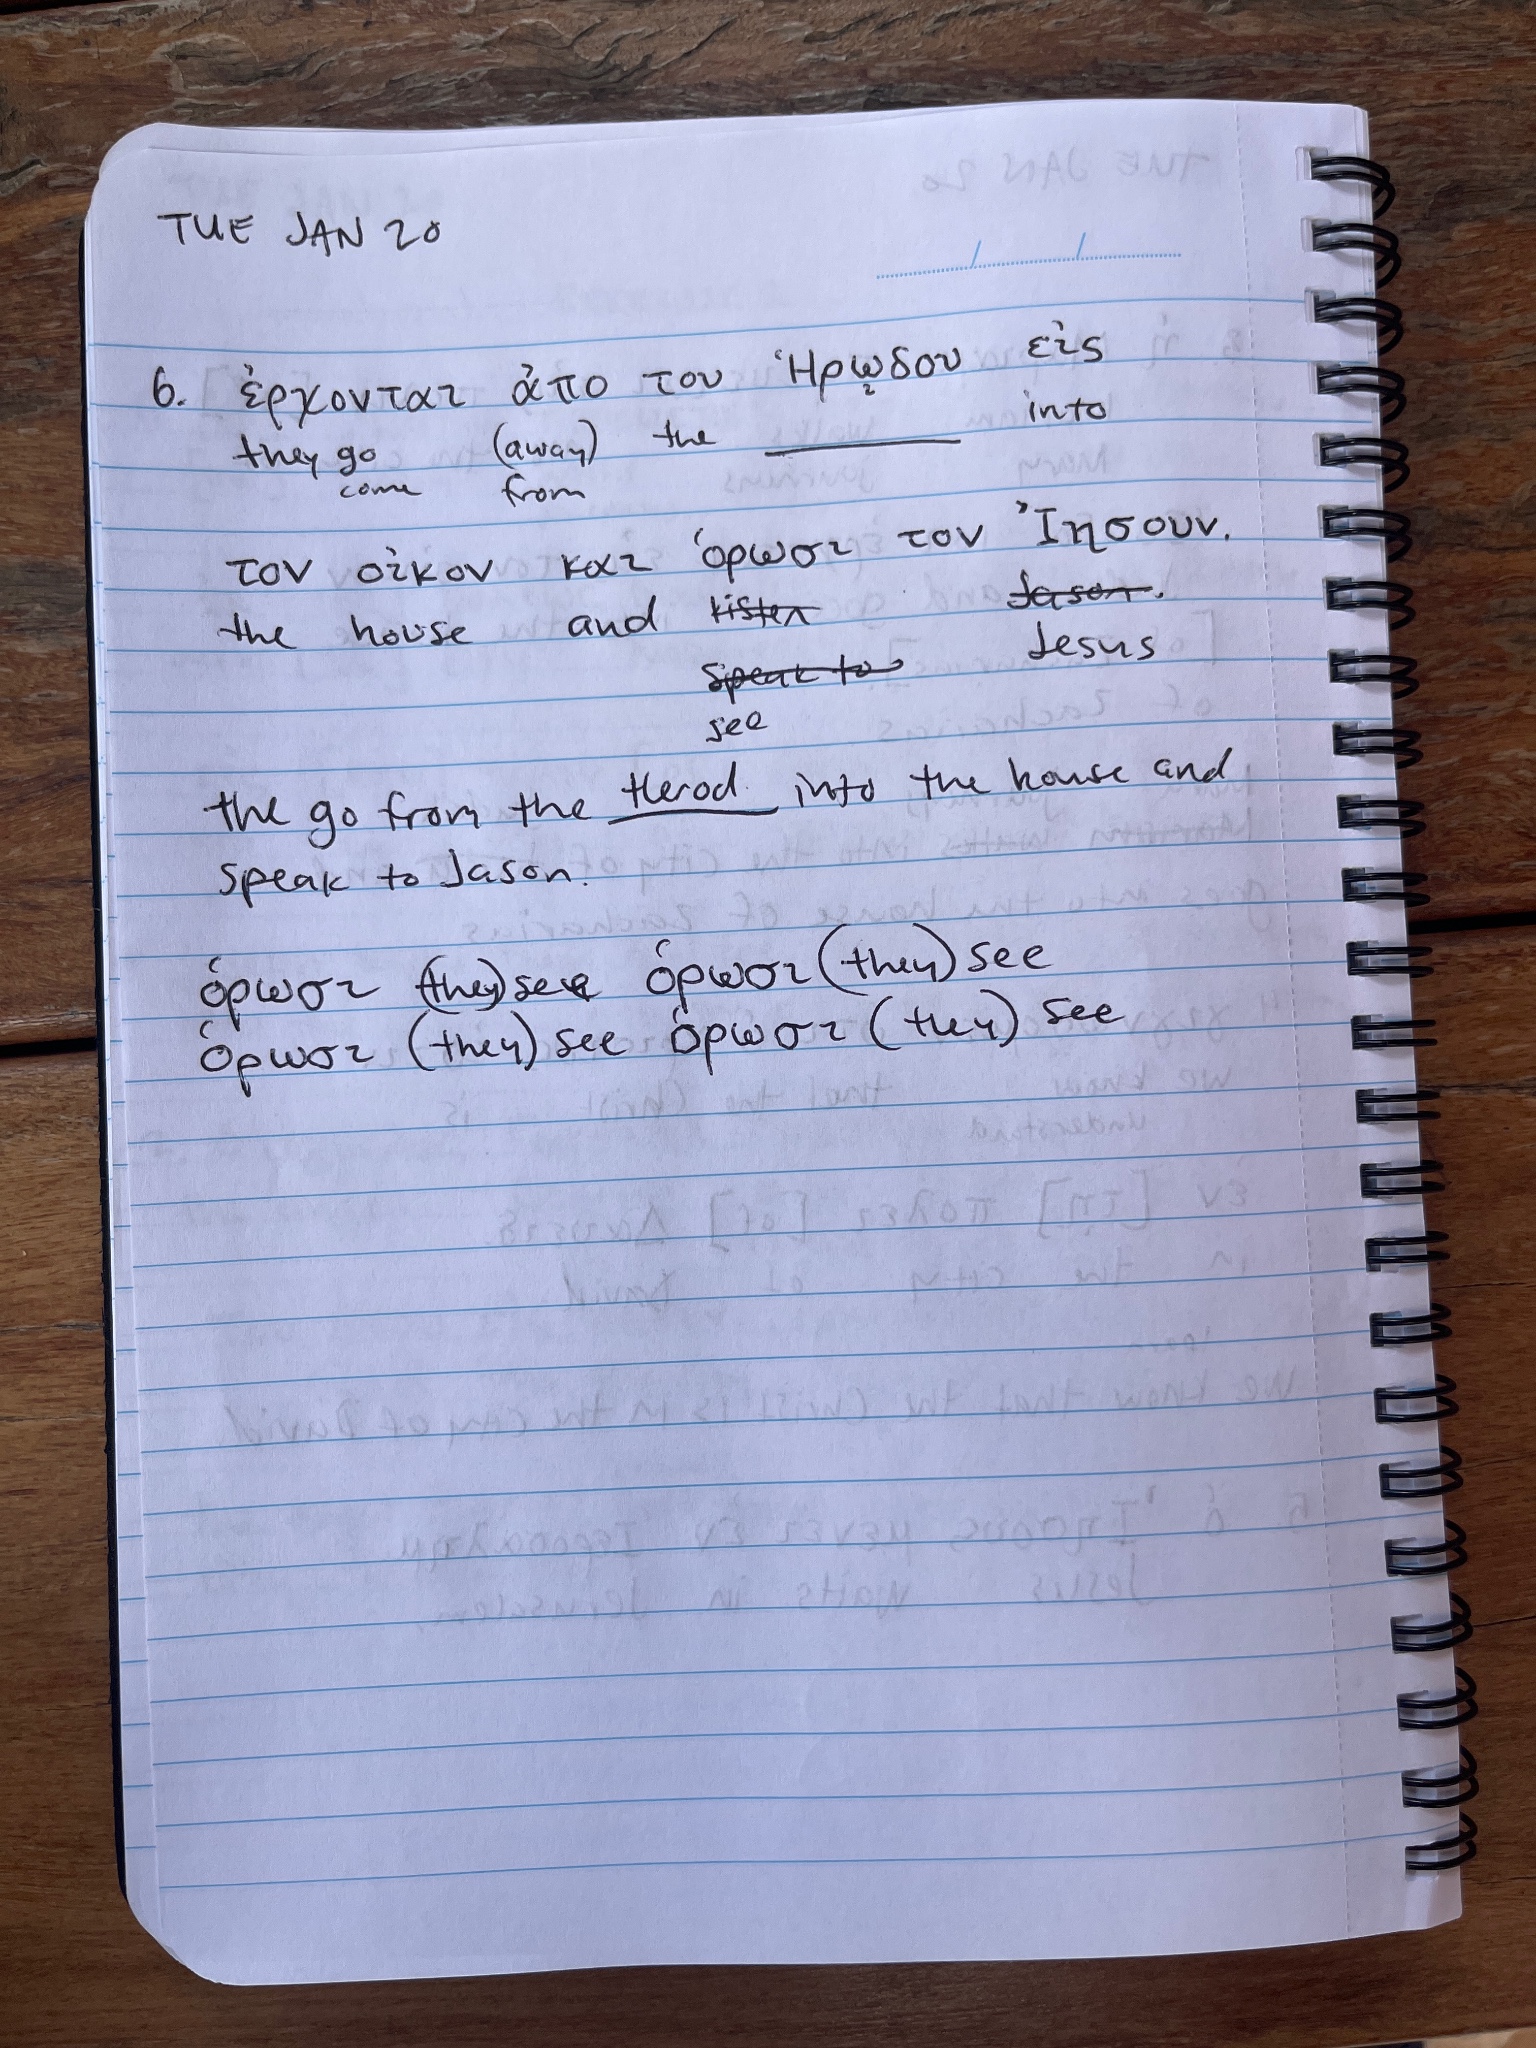 TUE JAN 20
6. ἐρχονται ἀπο του Ἡρῳδου εἰς
they go (away) the ______ into
come from
τον οἰκον και ὁρωσι τον Ἰησουν.
the house and listen Jason.
speak to Jesus
see
the go from the Herod into the house and
speak to Jason.
ὁρωσι (they) see ὁρωσι (they) see
ὁρωσι (they) see ὁρωσι (they) see